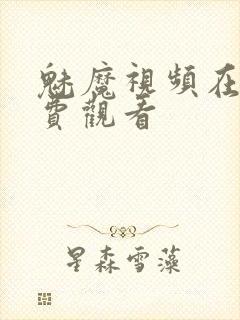 魅魔視頻在
費觀看
星森雪藻